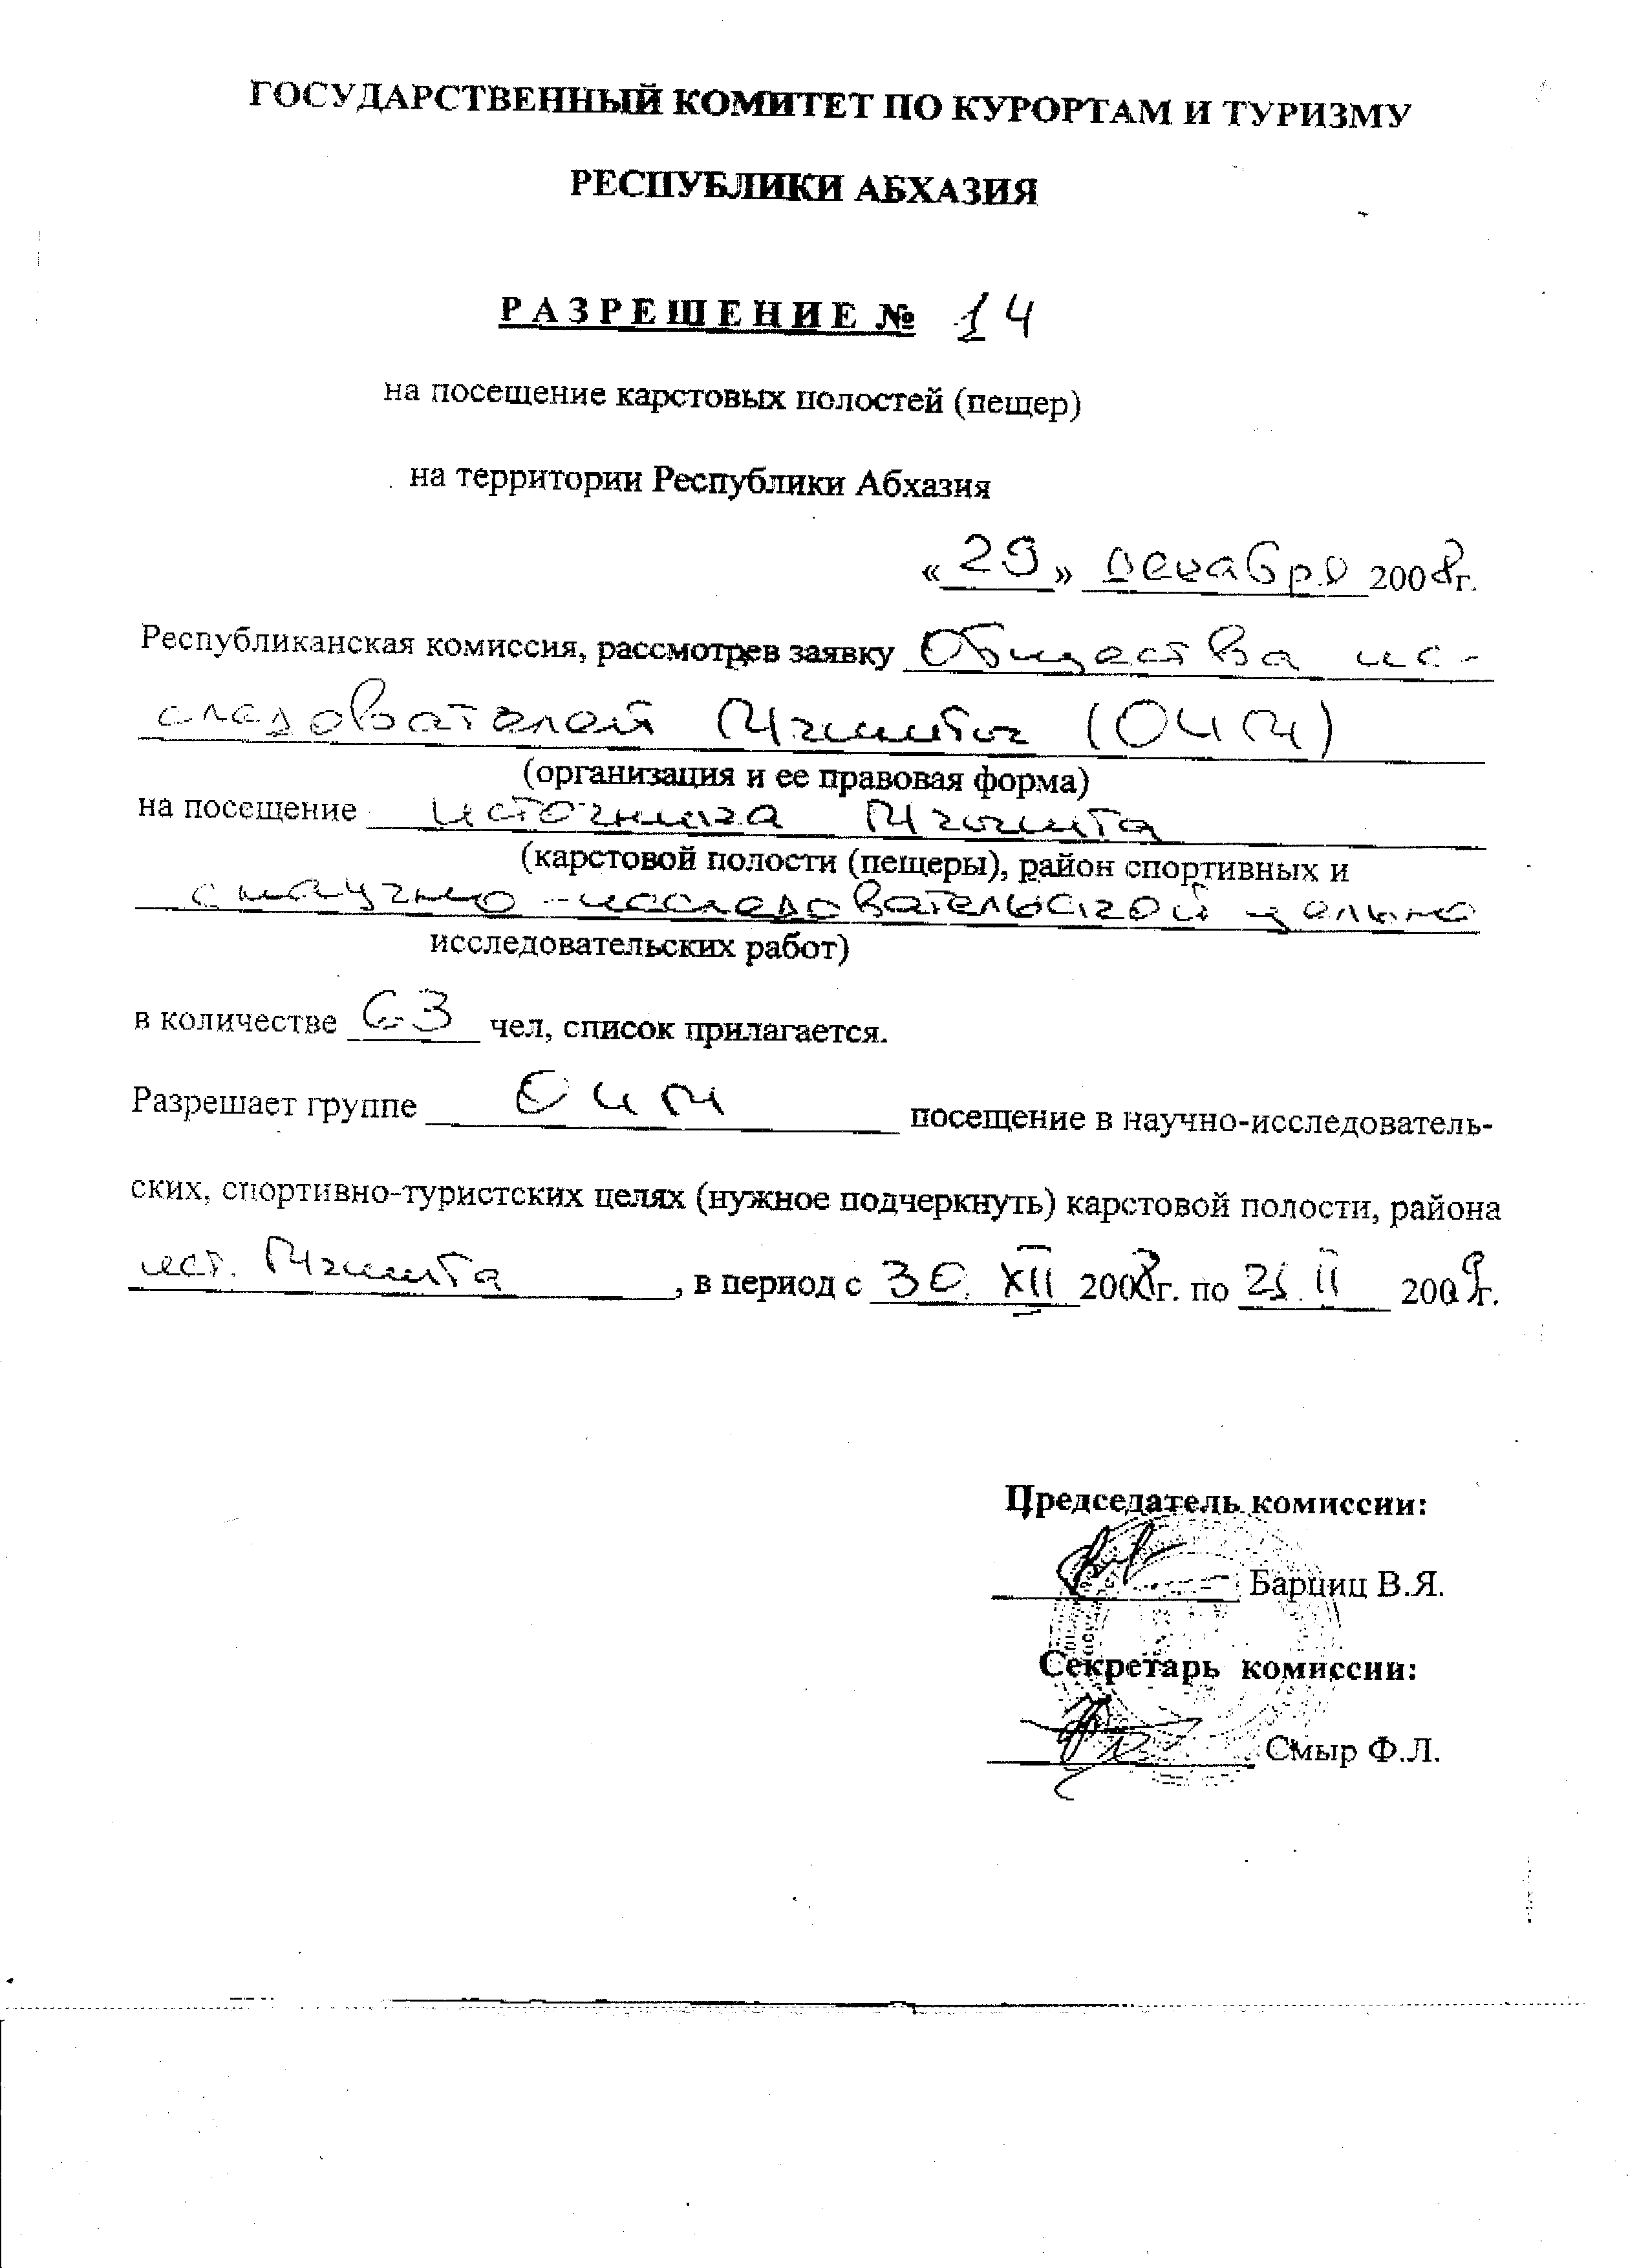 ГОСУДАРСТВЕННЫЙ КОМИТЕТ ПО КУРОРТАМ И ТУРИЗМУ
РЕСПУБЛИКИ АБХАЗИЯ
РАЗРЕШЕНИЕ № 14
на посещение карстовых полостей (пещер)
на территории Республики Абхазия
«29» декабря 2008г.
Республиканская комиссия, рассмотрев заявку Общества ис-
следователей Мчишты (ОИМ)
(организация и ее правовая форма)
на посещение источника Мчишта
(карстовой полости (пещеры), район спортивных и
с научно-исследовательской целью
исследовательских работ)
в количестве чел, список прилагается.
Разрешает группе ОИМ посещение в научно-исследователь-
ских, спортивно-туристских целях (нужное подчеркнуть) карстовой полости, района
ист. Мчишта, в период с 30. XII 2008г. по II 2009г.
Председатель комиссии:
Барциц В.Я.
Секретарь комиссии:
Смыр Ф.Л.